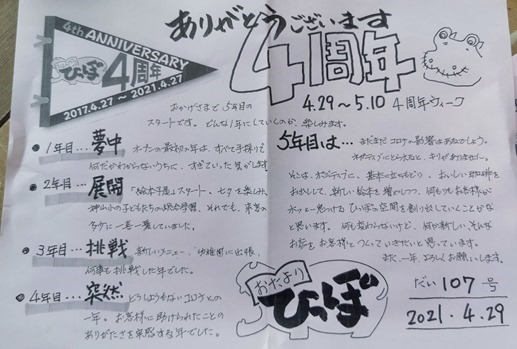 ありがとうございます
4周年
4.29～5.10 4周年ウィーク
4th ANNIVERSARY
ひっぽ 4周年
2017.4.27～2021.4.27
おかげさまで5年目の
スタートです。どんな1年にしていくのか、楽しみます。
1年目…夢中
オープンの最初の年は、すべて手探りで
何だかわからないうちに、すぎていった気がします
2年目…展開
「絵本千夜」スタート、七夕を楽しみ、
子どもたちの総合学習、それでも、来客の
多さに一喜一憂していました。
3年目…挑戦
新しいメニュー、「幼稚園に出張」
何事も挑戦した年でした。
4年目…突然
どうしようもないコロナとの
一年。お客様に助けられたことの
ありがたさを実感する年でした。
5年目は…
まだまだコロナの影響はあるでしょう。
キリがありません。
それは、さておき、基本に立ちもどり、おいしい珈琲を
お出しして、新しい絵本を増やしつつ、何よりもお客様が
ホッと一息つける ひっぽの空間を創り出していくことかな
と思います。何も変わらないけど、何か新しい、そんな
お店をお客様とつくっていきたいと思っています。
また、一年、よろしくお願いします。
おたより
ひっぽ
だい 107 号
2021.4.29